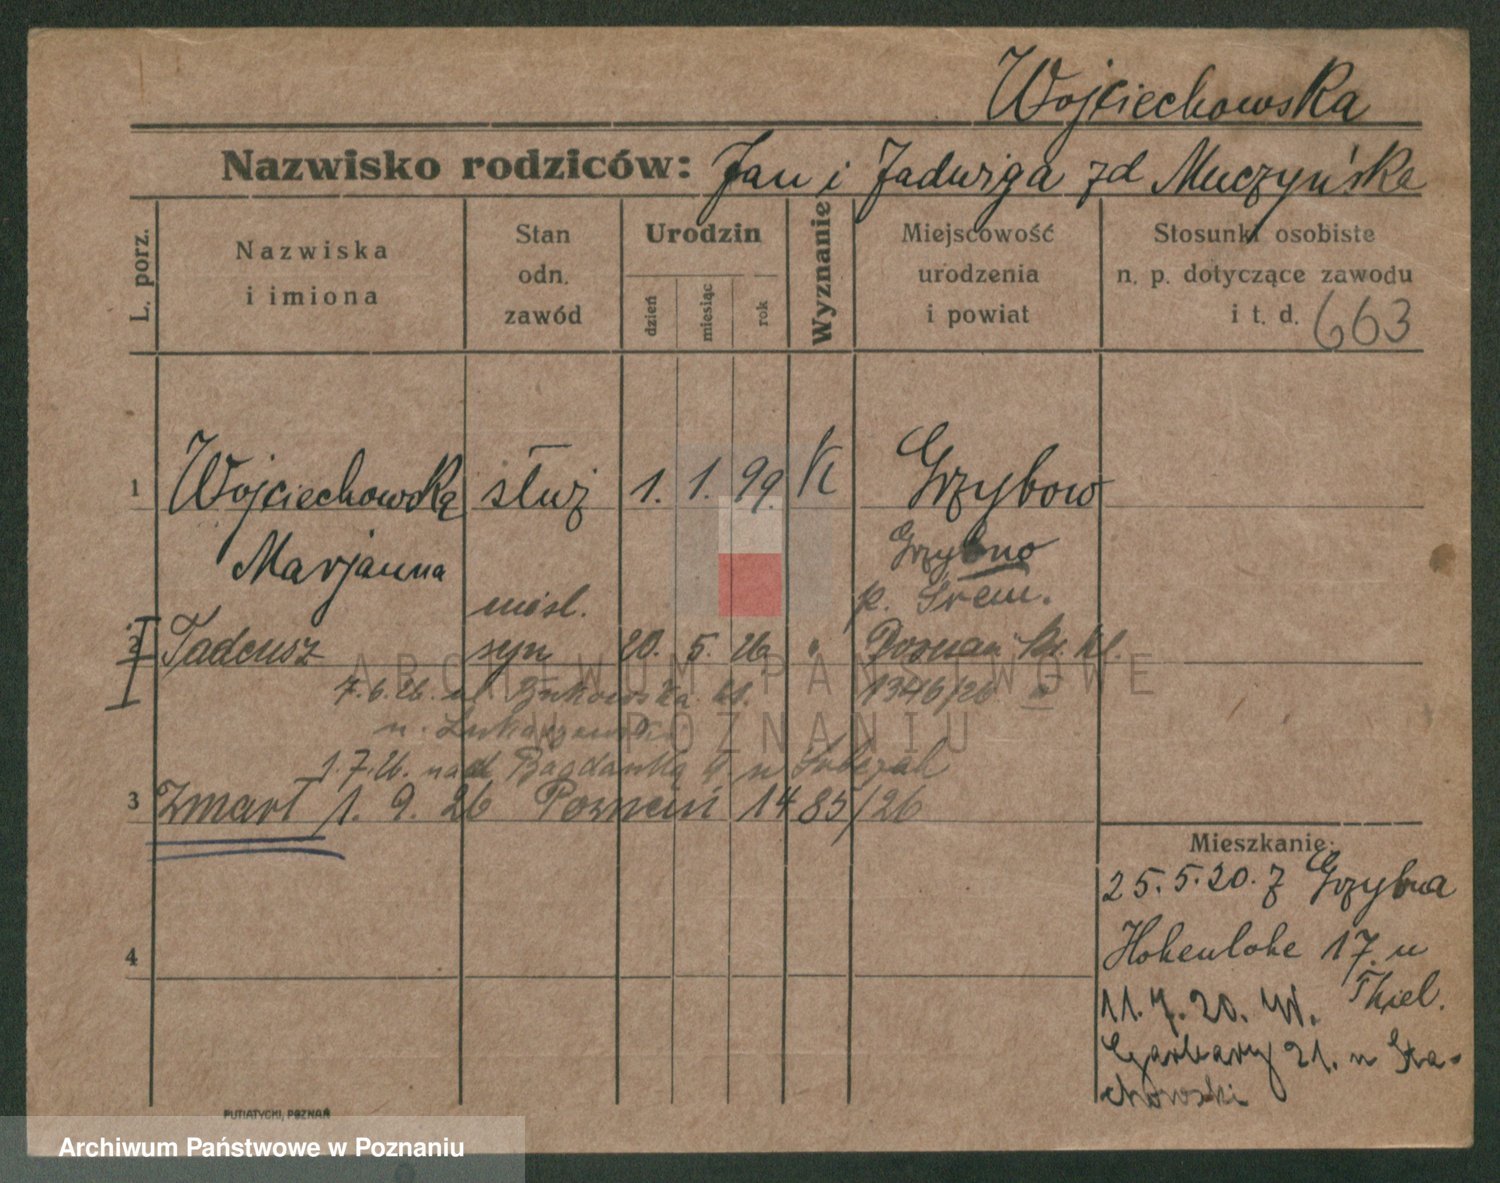 Wojciechowska
Nazwisko rodziców: Jan i Jadwiga zd Muczyńska
L. porz.
Nazwiska
i imiona
Stan
odn.
zawód
Urodzin
dzień
miesiąc
rok
Wyznanie
Miejscowość
urodzenia
i powiat
Stosunki osobiste
n. p. dotyczące zawodu
i t. d.
663
1 Wojciechowska służ 1. 1. 99. K Grzybow
Marjanna
Grzybno
p. Śrem.
nieśl.
2 Tadeusz syn 20. 5. 26 " Poznań
7.6.26. ul Bukowska
1346/26
n. Łukaszewski
1.7.26. nad Bogdanką 4 n
3 Zmarł 1. 9. 26 Poznań 1485/26
4
Mieszkanie:
25.5.20. z Grzybna
Hohenlohe 17. u
Thiel.
11.7.20. W.
Garbary 21. n Sta-
chowski
ARCHIWUM PAŃSTWOWE
W POZNANIU
PUTIATYCKI, POZNAŃ
Archiwum Państwowe w Poznaniu